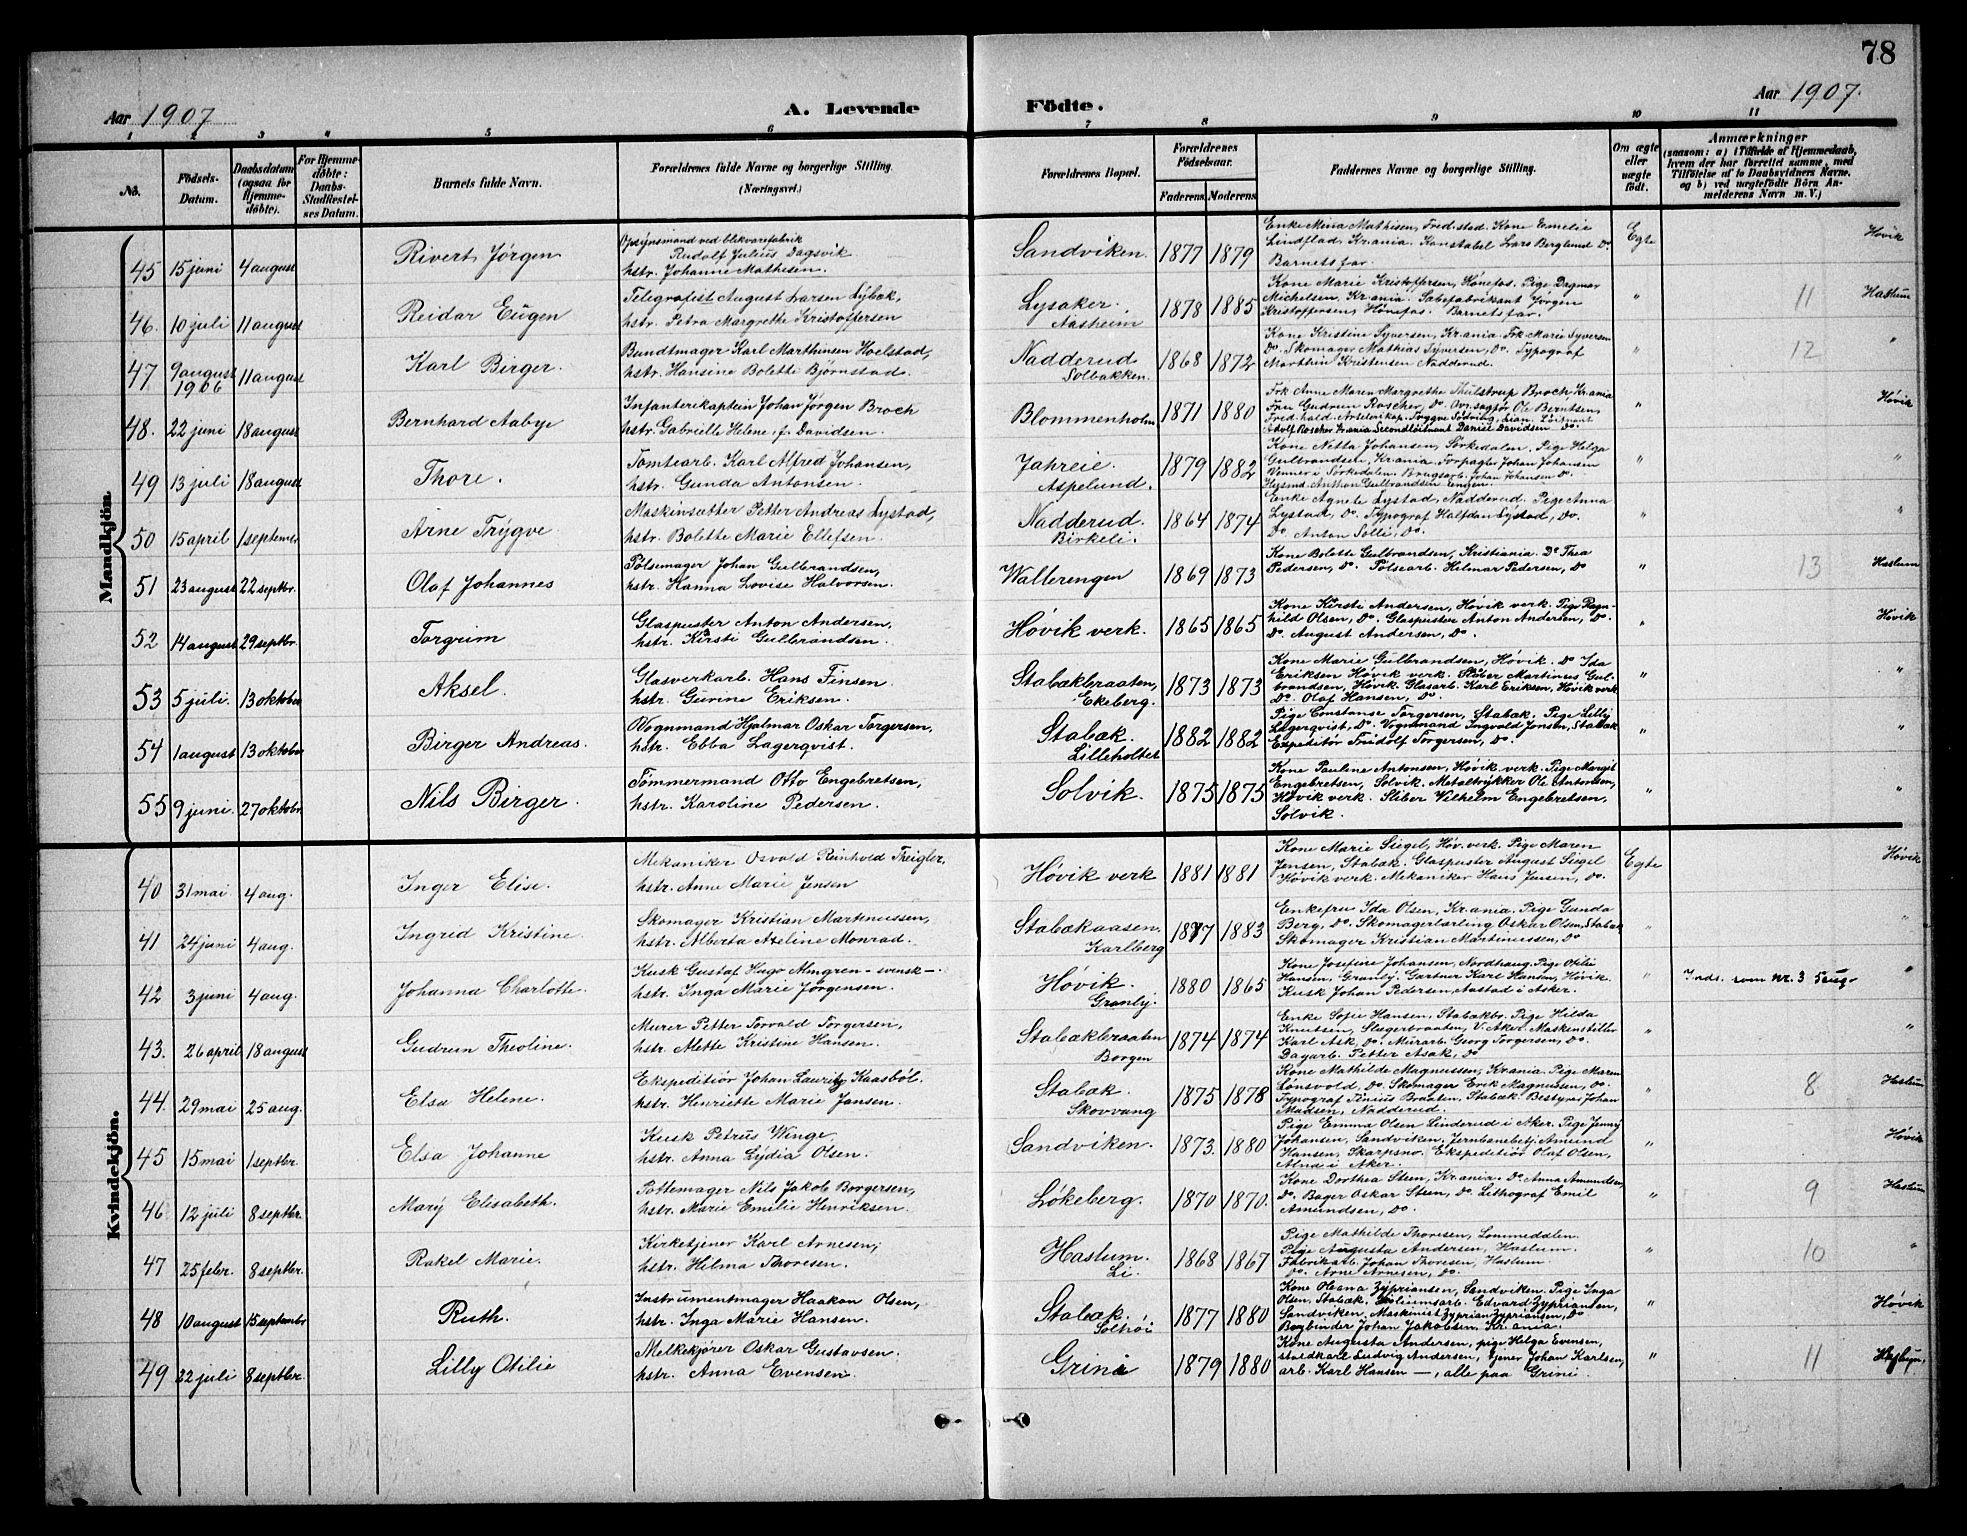 78
Aar 1907
A. Levende Födte.
Aar 1907.
1 2 3 4 5 6 7 8 9 10 11
No.
Födsels-Datum.
Daabsdatum (ogsaa for Hjemmedöbte).
For Hjemmedöbte: Daabs-Stadfæstelses Datum.
Barnets fulde Navn.
Forældrenes fulde Navne og borgerlige Stilling. (Næringsvei.)
Forældrenes Bopæl.
Forældrenes Födselsaar.
Faderens Moderens
Faddernes Navne og borgerlige Stilling.
Om ægte eller uægte födt.
Anmærkninger (saasom: a) i Tilfælde af Hjemmedaab, hvem der har forrettet samme, med Tilföielse af to Daabsvidners Navne, og b) ved uægtefödte Börn Anmelderens Navn m. V.)
Mandkjön.
45 15 juni 4 august Rivert Jørgen
Opsynsmand ved blikvarefabrik
Rudolf Julius Dagsvik
hstr. Johanne Mathisen.
Sandviken. 1877 1879
Enke Mina Mathisen, Fredstad. Kone Emelie
Lindflad, Kr.ania. Konstabel Lars Berglund Do
Barnets far.
Egte Høvik
46. 10 juli 11 august Reidar Eugen
Telegrafist August Larsen Lybæk,
hstr. Petra Margrethe Kristoffersen
Lysaker. Aasheim 1878 1885
Kone Marie Kristoffersen, Hønefos. Pige Dagmar
Michelsen, Kr.ania. Sæbefabrikant Jørgen
Kristoffersen, Hønefos. Barnets far.
" 11 Haslum
47 9 august 1906 11 august Karl Birger.
Bundtmager Karl Marthinsen Hoelstad,
hstr. Hansine Bolette Bjørnstad.
Nadderud Solbakken. 1868 1872
Kone Kristine Syversen, Kr.ania. Frk Marie Syversen
Do. Skomager Mathias Syversen, Do. Typograf
Marthin Kristensen Nadderud.
" 12 "
48. 22 juni 18 august Bernhard Aabye
Infanterikaptein Johan Jørgen Broch
hstr. Gabrielle Helene f. Davidsen.
Blommenholm 1871 1880
Frk Anne Maren Margrethe Thulstrup Broch Kr.ania
Fru Gudrun Roscher, Do. Ovr.sagfør Ole Berntsen,
Adolf Roscher Kr.ania Secondløitnant Daniel Davidsen Do.
" Høvik
49 13 juli 18 august Thore.
Tomtearb. Karl Alfred Johansen,
hstr. Gunda Antonsen.
Jahreie. Aspelund. 1879 1882
Kone Netta Johansen, Sørkedalen. Pige Helga
Gulbrandsen, Kr.ania. Forpagter Johan Johansen
Venner i Sørkedalen. Brugsarb. Johan Johansen Do
Husmd. Anthon Gulbrandsen Engen.
" "
50 15 april 1 septembr Arne Trygve.
Maskinsætter Petter Andreas Lystad,
hstr. Bolette Marie Ellefsen.
Nadderud. Birkeli. 1864 1874
Enke Agnete Lystad, Nadderud. Pige Anna
Lystad, Do. Typograf Halfdan Lystad, Do.
Do. Anton Solli, Do.
" "
51 23 august 22 septbr. Olaf Johannes
Pølsemager Johan Gulbrandsen,
hstr. Hanna Lovise Halvorsen.
Wallerengen 1869 1873
Kone Bolette Gulbrandsen, Kristiania. Do Thea
Pedersen, Do. Pølsearb. Hilmar Pedersen, Do
" 13 Haslum
52 14 august 29 septbr. Torgrim
Glaspuster Anton Andersen,
hstr. Kirsti Gulbrandsen.
Høvik verk. 1865 1865
Kone Kirsti Andersen, Høvik verk. Pige Ragnhild Olsen, Do. Glaspuster Anton Andersen, Do.
Do. August Andersen, Do.
" Høvik
53 5 juli. 13 oktober Aksel.
Glasverkarb. Hans Finsen.
hstr. Gurine Eriksen.
Stabækbraaten, Ekeberg. 1873 1873
Kone Marie Gulbrandsen, Høvik. Do Ida
Eriksen Høvik verk. Sliber Martinus Gulbrandsen, Høvik. Glasarb. Karl Eriksen, Høvik verk
Do. Olaf Hansen, Do.
" "
54 1 august 13 oktober Birger Andreas.
Vognmand Hjalmar Oskar Torgersen,
hstr. Ebba Lagerqvist.
Stabæk. Lilleholtet 1882 1882
Pige Constanse Torgersen, Stabæk. Pige Lilly
Lagerqvist, Do. Vognmand Ingvald Jensen, Stabæk
Expeditør Fridolf Torgersen, Do.
" "
55 9 juni. 27 oktobr. Nils Birger.
Tømmermand Otto Engebretsen,
hstr. Karoline Pedersen.
Solvik. 1875 1875
Kone Pauline Antonsen, Høvik verk. Pige Margit
Engebretsen, Solvik. Metaltrykker Ole Antonsen,
Høvik verk. Sliber Vilhelm Engebretsen,
Solvik.
" "
Kvindekjön.
40 31 mai 4 aug. Inger Elise.
Mekaniker Osvald Reinhold Theigler,
hstr. Anne Marie Jensen
Høvik verk 1881 1881
Kone Marie Siegel, Høv. verk. Pige Maren
Jensen, Stabæk. Glaspuster August Siegel
Høvik verk. Mekaniker Hans Jensen, Do.
Egte Høvik
41 24 juni 4 aug. Ingrid Kristine.
Skomager Kristian Martinussen,
hstr. Alberta Axeline Monrad.
Stabækaasen, Karlberg 1877 1883
Enkefru Ida Olsen, Kr.ania. Pige Gunda
Berg, Do. Skomagerlærling Oskar Olsen, Stabæk
Skomager Kristian Martinussen, Do
" "
42 3 juni 4 aug. Johanna Charlotte.
Kusk Gustaf Hugo Almgren - svensk -.
hstr. Inga Marie Jørgensen.
Høvik. Granly. 1880 1865
Kone Josefine Johansen, Nordhaug. Pige Otilie
Hansen, Granly. Gartner Karl Hansen, Høvik.
Kusk Johan Pedersen, Aastad i Asker.
" Inds. som nr. 3 "
43. 26 april 18 august Gudrun Theoline.
Murer Petter Torvald Torgersen,
hstr. Alette Kristine Hansen.
Stabækbraaten Borgen 1874 1874
Enke Sofie Hansen, Stabækbr. Pige Hilda
Knutsen, Slagerbraaten, V. Aker. Maskinstillbr
Karl Ask, Do. Murarb. Georg Torgersen, Do.
Dagarb. Petter Asak, Do
" "
44. 29 mai 25 aug. Elsa Helene.
Ekspeditiør Johan Lauritz Kaasbøl.
hstr. Henriette Marie Jansen.
Stabæk. Skovvang 1875 1878
Kone Mathilde Magnussen, Kr.ania. Pige Maren
Lønsvold, Do. Skomager Erik Magnussen, Do.
Typograf Tinius Braaten, Stabæk. Bestyrer Johan
Madsen, Nadderud.
" 8 Haslum
45 15 mai 1 septbr. Elsa Johanne
Kusk Petrus Winge.
hstr. Anna Lydia Olsen.
Sandviken. 1873. 1880
Pige Emma Olsen Linderud i Aker. Pige Jenny
Johansen, Sandviken, Jernbanebetj. Amund
Hansen, Skarpsno. Ekspeditiør Olaf Olsen,
Alna i Aker.
" Høvik
46 12 juli 8 septbr. Mary Elisabeth.
Pottemager Nils Jakob Borgersen,
hstr. Marie Emilie Henriksen.
Løkeberg. 1870 1870.
Kone Dorthea Steen, Kr.ania. Do Anna Amundsen,
Do. Bager Oskar Steen, Do. Lithograf Emil
Amundsen, Do.
" 9 Haslum
47 25 febr. 8 septbr. Rakel Marie.
Kirketjener Karl Arnesen,
hstr. Hilma Thoresen.
Haslum. Li. 1868 1867
Pige Mathilde Thoresen, Lommedalen.
Pige Augusta Andersen, Haslum.
Fabrikarb. Johan Thoresen, Haslum.
Do. Arne Arnesen, Do.
" 10 "
48 10 august 15 septembr Ruth.
Instrumentmager Haakon Olsen,
hstr. Inga Marie Hansen.
Stabæk. Solhøi 1877 1880
Kone Oleana Zypriansen, Sandviken. Pige Inga
Olsen, Stabæk. Edvard Zypriansen,
Sandviken, Maskinist Zyprian Zypriansen, Do
Bogbinder Johan Jakobsen. Kr.ania.
" Høvik
49 22 juli 8 septbr. Lilly Otilie
Melkekjører Oskar Gustavsen.
hstr. Anna Evensen.
Grini 1879 1880
Kone Augusta Andersen, pige Helga Evensen,
staldkarl Ludvig Andersen, tjener Johan Karlsen,
arb. Karl Hansen —, alle paa Grini.
" 11 Haslum